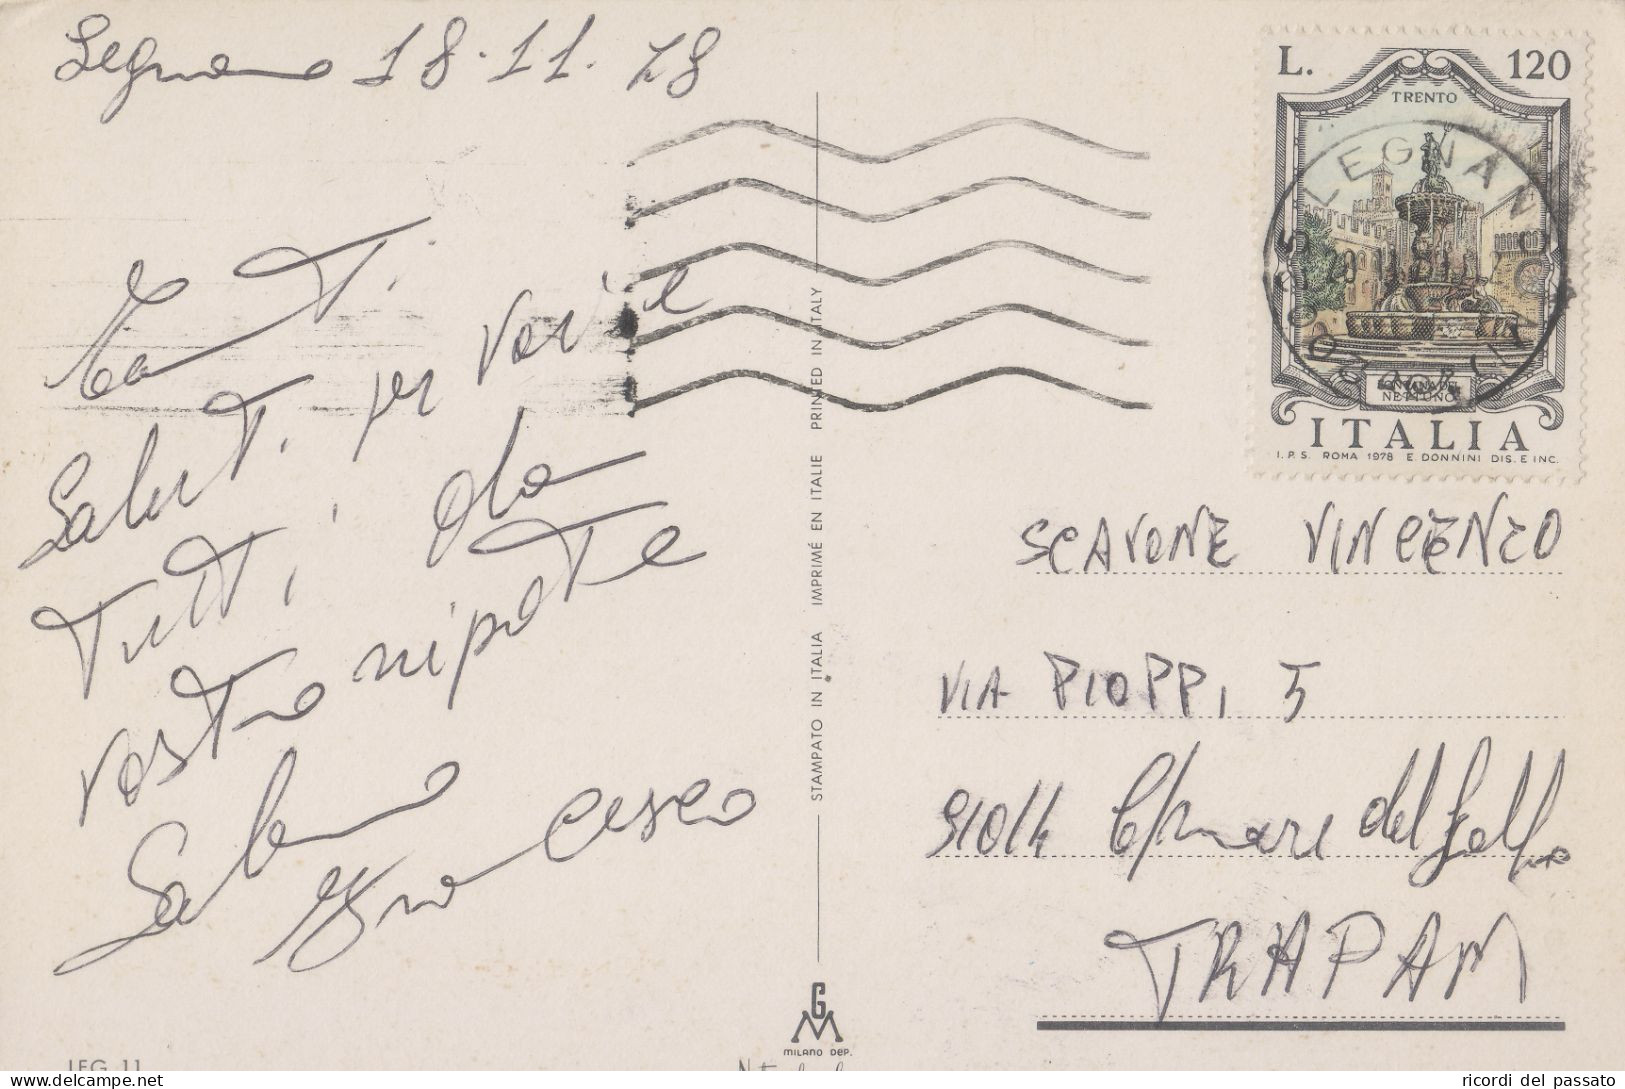 Legnano 18.11.78
Tanti
Saluti per voi e
Tutti, dla
vostro nipote
Salerno
Francesco
STAMPATO IN ITALIA IMPRIMÉ EN ITALIE PRINTED IN ITALY
GM
MILANO DEP.
LEG 11
L. 120
TRENTO
LEGNANO
FONTANA DEL
NETTUNO
ITALIA
I.P.S. ROMA 1978 E. DONNINI DIS. E INC.
SCAVONE VINCENZO
VIA PIOPPI 5
91014 C/Mare del Golfo
TRAPANI
ricordi del passato